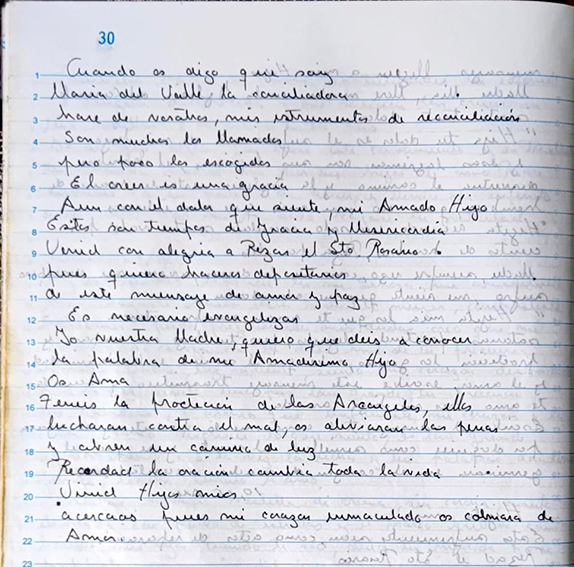 30
1 Cuando os digo que soy
2 Maria del Valle, la conciliadora
3 hare de vosotros, mis istrumentos de reconciliación
4 Son muchos los llamados
5 pero pocos los escogidos
6 El creer es una gracia
7 Aun con el dolor que siente, mi Amado Hijo
8 Estos son tiempos de Gracia y Misericordia
9 Venid con alegria a Rezar el Sto Rosario.
10 pues quiero haceros depositarios
11 de este mensage de amor y paz
12 Es necesario evangelizar
13 Yo vuestra Madre, quiero que deis a conocer
14 la palabra de mi Amadisimo Hijo
15 Os Ama
16 Teneis la proctección de los Arcangeles, ellos
17 lucharan contra el mal, os aliviaran las penas
18 y abren un camino de luz
19 Recordad la oración cambia toda la vida
20 Venid Hijos mios
21 acercaos pues mi corazon inmaculado os colmara de
22 Amor
23